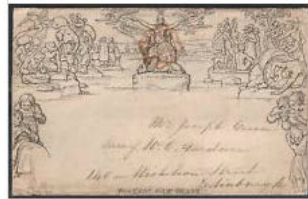 Mr Joseph Cruse
care of W. C. Gardner
140 Nicholson Street
Edinburgh
POSTAGE ONE PENNY